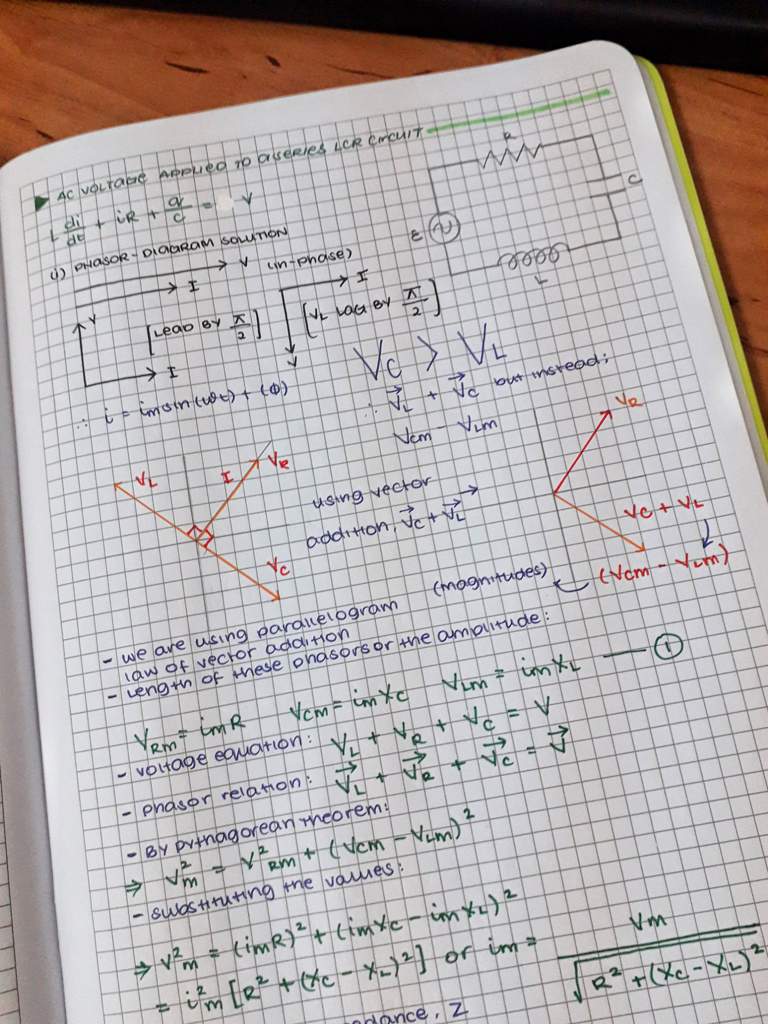 ► AC VOLTAGE APPLIED TO A SERIES LCR CIRCUIT
L di/dt + iR + q/c = V
R
C
L
ε
(i) PHASOR-DIAGRAM SOLUTION
V (in-phase)
I
V
[LEAD BY π/2]
I
I
[VL LAG BY π/2]
V
VC > VL
∴ i = im sin(ωt) + (ϕ)
∴ V⃗L + V⃗C but instead;
Vcm - VLm
VL
I
VR
VC
using vector
addition, V⃗C + V⃗L
VR
VC + VL
(Vcm - VLm)
(magnitudes)
- we are using parallelogram
law of vector addition
- Length of these phasors or the amplitude:
VRm = imR VCm = imXC VLm = imXL — ①
- voltage equation: VL + VR + VC = V
- phasor relation: V⃗L + V⃗R + V⃗C = V⃗
- By pythagorean theorem:
⇒ V²m = V²Rm + (Vcm - VLm)²
- substituting the values:
⇒ V²m = (imR)² + (imXC - imXL)²
= i²m [R² + (XC - XL)²] or im = Vm / √R² + (XC - XL)²
, Z